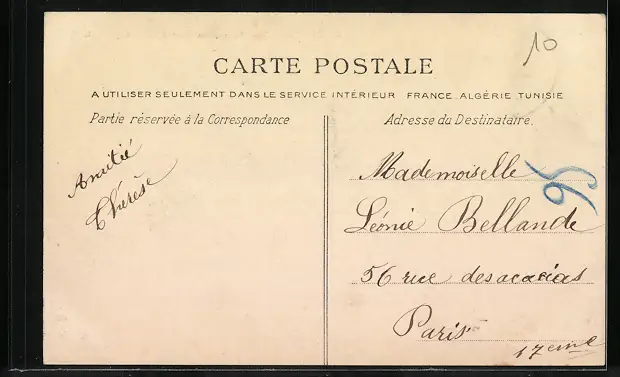 10
CARTE POSTALE
A UTILISER SEULEMENT DANS LE SERVICE INTÉRIEUR FRANCE. ALGÉRIE TUNISIE
Partie réservée à la Correspondance
Adresse du Destinataire.
Amitié
Thérèse
Mademoiselle
Léonie Bellande
56 rue des acacias
Paris
17eme